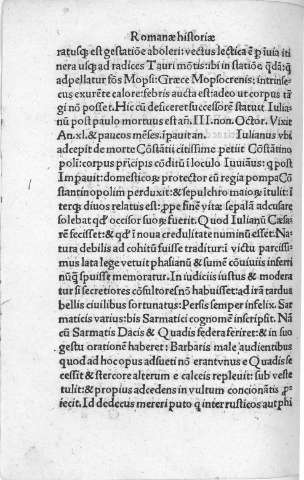 Romanæ historiæ
ratusq; est gestatiõe aboleri: vectus lectica ẽ p̱ inuia iti
nera usq; ad radices Tauri mõtis: ibi in statiõe q̃dã: q̃
ad pellatur fõs Mopsi: Græce Mopsocrenis: intrinse⸗
cus exurẽte calore: febris aucta est: adeo ut corpus tã
gi nõ posset. Hic cũ desiceret successorẽ statuit Iulia⸗
nũ post paulo mortuus est an. III. non. Octor. Vixit
An. xl. & paucos mẽses. ĩpauit an. Iulianus vbi
adcepit de morte Cõstãti citissime petiit Cõstãtino
poli: corpus pricipis cõditũ ĩ loculo Iuuianus: q post
Impauit: domestico⁊ & protector cũ regia pompa Cõ
stantinopolim perduxit: & sepulchro maio⁊ ĩtulit: ĩ
terq; diuos relatus est: ꝓpe finẽ vitæ sepalã adcusare
solebat qđ occisor suo⁊ & fuerit. Quod Iulianũ Cæsa⸗
rẽ fecisset: & qđ ĩ noua credulitate numinũ esset: Na⸗
tura debilis ad cohitũ fuisse traditur: ĩ victu parcissi⸗
mus lata lege vetuit phasianũ & fumẽ cõuiuiis inferri
nũq̃ spuisse memoratur. In iudiciis iustus & modera
tur si secretiores cõsultores nõ habuisset: ad irã tardus
bellis ciuilibus fortunatus: Persis semper infelix. Sar
maticis varius: bis Sarmatici cognomẽ inscripsit. Nã
cũ Sarmatis Dacis & Quadis fedeṛa feriret: & in suo
gestu orationẽ haberet: Barbaris male audientibus
quod ad hoc opus adsueti nõ erant vnus e Quadis se
cessit & stercore alterum e calceis repleuit: sub veste
tulit: & propius adcedens in vultum concionãtis p̱⸗
iecit. Id dedecus mereri puto q̃ inter rusticos aut phi